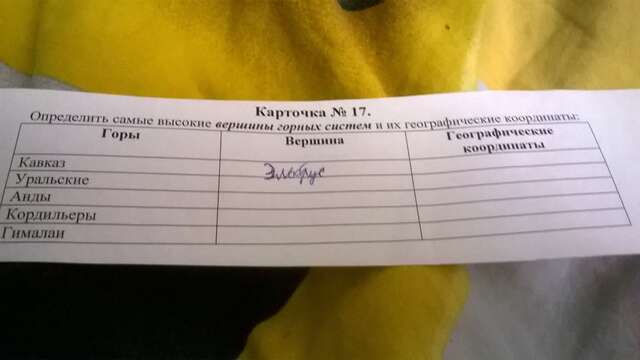 Карточка № 17.
Определить самые высокие вершины горных систем и их географические координаты:
Горы Вершина Географические координаты
Кавказ Эльбрус
Уральские
Анды
Кордильеры
Гималаи